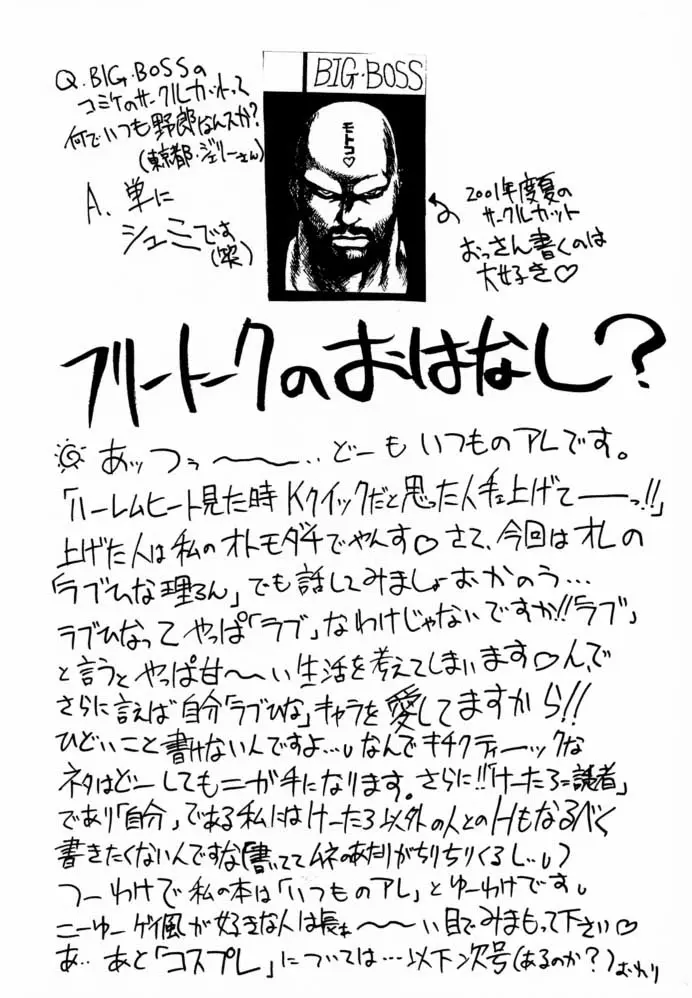 Q. BIG・BOSSの
コミケのサークルカットって
何でいつも野郎なんスか?
(東京都・ジェリーさん)
A. 単に
シュミです
(笑)
BIG・BOSS
モトコ♡
2001年度夏の
サークルカット
おっさん書くのは
大好き♡
フリートークのおはなし?
あッつぅ〜〜‥どーも いつものアレです。
「ハーレムヒート見た時 Kクイックだと思った人手上げてーーっ!!」
上げた人は私のオトモダチでやんす♡ さて、今回はオレの
「ラブひな理ろん」でも話してみましょおかのう…
ラブひなって やっぱ「ラブ」なわけじゃないですか!!「ラブ」
と言うと やっぱ甘〜〜い 生活を考えてしまいます♡んで
さらに言えば 自分「ラブひな」キャラを愛してますから!!
ひどいこと書けない人ですよ…。なんでキチクティーックな
ネタはどーしてもニが手になります。さらに!!「けーたろ=読者」
であり「自分」である私にはけーたろ以外の人とのHもなるべく
書きたくないんですな(書いててムネのあたりがちりちりくるし…)
つーわけで 私の本は「いつものアレ」とゆーわけです。
こーゆー ゲイ風が好きな人は長ぁ〜〜い目でみまもって下さい♡
あ‥ あと「コスプレ」については…以下次号(あるのか?) おわり